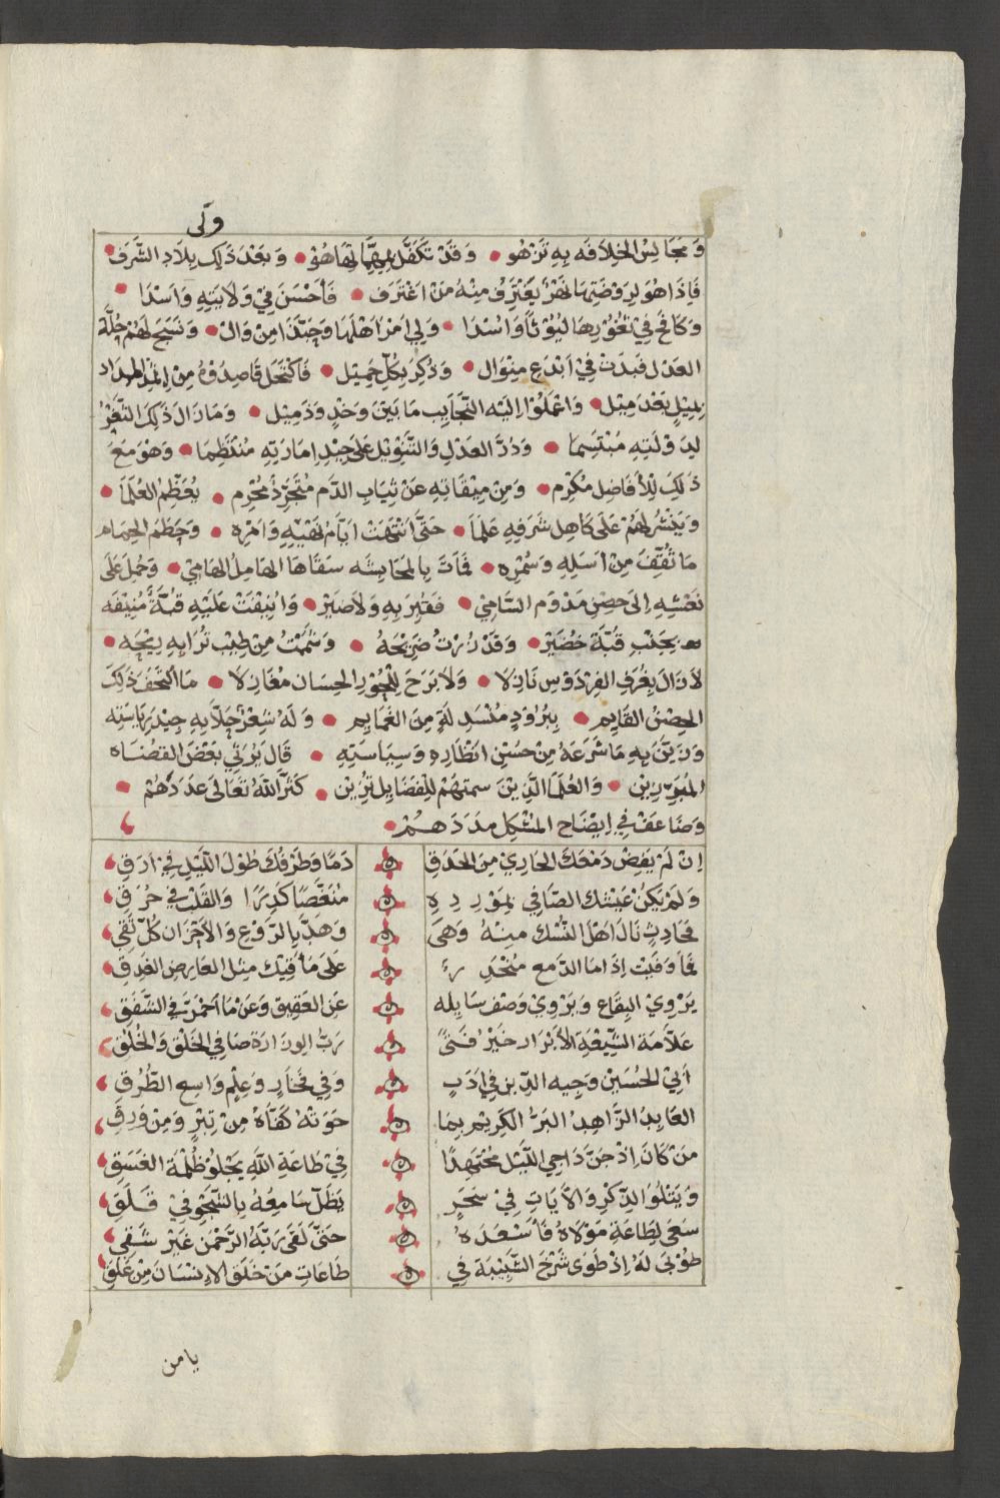 ولى
وَمَجَالِسُ الخِلَافَه بِهِ تَزْهُو • وَقَدْ تَكَفَّلَ بِمُهِمَّاتِهَا هُوْ • وَبَعْدَ ذَلِكَ بِلَادِ الشَّرَفْ •
فَإِذَا هُوَ لِرَوْضَتِهَا نَهْرٌ يُغْتَرَفُ مِنْهُ مَنْ اغْتَرَفْ • فَأَحْسَنَ فِيْ وَلَايَتِهِ وَاَسْدَا •
وَكَافَحَ فِيْ ثُغُوْرِهَا لُيُوْثًا وَاُسْدَا • وَلِيَ اَمْرَ اَهْلِهَا وَحَبَّذَا مِنْ وَالْ • وَنَسَجَ لَهُمْ حُلَّة
العَدْل فَبَدَتْ فِيْ اَبْدَعِ مِنْوَال • وَذُكِرَ بِكُلِّ جَمِيْل • فَاكْتَحَلَ قَاصِدُوْهُ مِنْ اِثْمِدِ المِدَاد
بِمِيْلٍ بَعْدَ مِيْل • وَاعْمَلُوْا اِلَيْه النَّجَايِب مَا بَيْنَ وَخْدٍ وَذَمِيْل • وَمَا زَالَ ذَلِكَ الثَّغْرُ
لِدَوْلَتِهِ مُبْتَسِمَا • وَدُرَّ العَدْلِ وَالتَّنْوِيْلِ عَلَى جِيْدِ اِمَارَتِهِ مُنْتَظِمَا • وَهْوَ مَعَ
ذَلِكَ لِلْأَفَاضِل مُكْرِم • وَمِنْ مِيْقَاتِهِ عَنْ ثِيَابِ الذَّم مُتَجَرِّدٌ مُحْرِم • يُعَظِّمُ العُلَمَا •
وَيَنْشُرُ لَهُمْ عَلَى كَاهِل شَرَفِهِ عَلَمَا • حَتَّى انْتَهَتْ ايَّامُ نَهْيِهِ وَامْرِه • وَحَطَمَ الحِمَام
مَا ثُقِّفَ مِنْ اَسَلِهِ وَسُمْرِه • فَمَاتَ بِالمَحَابِشَه سَقَاهَا الهَامِلُ الهَامِيْ • وَحُمِلَ عَلَى
نَعْشِهِ اِلَى حِصْنِ مَدْوَم السَّامِيْ • فَقُبِرَ بِهِ وَلَا ضَيْر • وَابْنِيْتْ عَلَيْهِ قُبَّةٌ مُنِيْفَه
بِجَنْبِ قُبَّة خُضَيْر • وَقَدْ زُرْتُ ضَرِيْحَهُ • وَشَمَمْتُ مِنْ طِيْبِ تُرَابِهِ رِيْحَه •
لَا زَالَ بِغُرَفِ الفِرْدَوْسِ نَازِلًا • وَلَا بَرِحَ لِلْحُوْرِ الحِسَان مُغَازِلًا • مَا التَحَفَ ذَلِكَ
الحِصْنُ القَايِم • بِبُرُوْدٍ مُنْسَدِلَةٍ مِنَ الغَمَايِم • وَلَهُ شِعْرٌ حَلَّا بِهِ جِيْدَ رِيَاسَتِه
وَزَيَّنَ بِهِ مَا شَرَعَهُ مِنْ حُسْنِ انْظَارِهِ وَسِيَاسَتِهِ • قَالَ يَرْثِي بَعْضَ القُضَاه
المُبَرِّزِيْن • وَالعُلَمَا الَّذِيْنَ سمتهُمْ لِلْفَضَايِل تَزِيْن • كَثَّرَ اللهُ تَعَالَى عَدَدَهُمْ •
وَضَاعَفَ فِي اِيْضَاح المُشْكِل مَدَدَهُمْ •
اِنْ لَمْ يَفِضْ دَمْعَكَ الجَارِيْ مِنَ الحَدَقِ دَمًا وَطَرْفُكَ طُوْلَ اللَّيْلِ فِي اَرَقِ
وَلَمْ يَكُنْ عَيْشك الصَّافِي لِمَوْرِدِهِ مُنَغَّصًا كَدِرًا وَالقَلْبُ في حُرَقِ
فَحَادِثٌ نَالَ اهْلَ النُّسْك مِنْهُ وَهَى وَهَدَّ بِالرَّوْعِ وَالاَحْزَان كُلَّ تَقِي
فَمَا وَفَيْتَ اِذَا مَا الدَّمع مُنْحَدِرٌ عَلَى مَآقِيْك مِثْل العَارِض الغَدِقِ
يَرْوِيْ البِقَاع وَيَرْوِيْ وَصْف سَايِله عَنِ العَقِيْق وَعَنْ مَا احْمَرَّ فِي الشَّفَقِ
عَلَّامَة الشِّيْعَةِ الاَبْرَار خَيْرُ فَتًى رَبُّ الوِزَارَة صَافِي الخَلْق وَالخُلُقِ
اَبِيْ الحُسَيْنِ وَجِيه الدِّيْنِ فِي اَدَبٍ وَفِي فَخَارٍ وَعِلْمٍ وَاسِعِ الطُّرُقِ
العَابِدُ الزَّاهِدُ البَرُّ الكَرِيْم بِمَا حَوَتْهُ كَفَّاهُ مِنْ تِبْرٍ وَمِنْ وَرِقِ
مَنْ كَانَ اِذْ جَنَّ دَاجِي اللَّيْل مُجْتَهِدًا فِيْ طَاعَةِ اللَّهِ يَجْلُوْ ظُلْمَةَ الغَسَقِ
وَيَتْلُوَا الذِّكْر وَالآيَات فِيْ سَحَرٍ يَظَلُّ سَامِعُهُ بِالشَّجْوِ فِيْ قَلَقِ
سَعَى لِطَاعَةِ مَوْلَاهُ فَأَسْعَدَهُ حَتَّى لَقَى رَبَّهُ الرَّحْمَن غَيْرَ شَقِي
طُوْبَى لَهُ اِذْ طَوَى شَرْخَ الشَّبِيْبَة فِي طَاعَاتِ مَنْ خَلَقَ الاِنْسَانَ مِنْ عَلَقِ
يا من